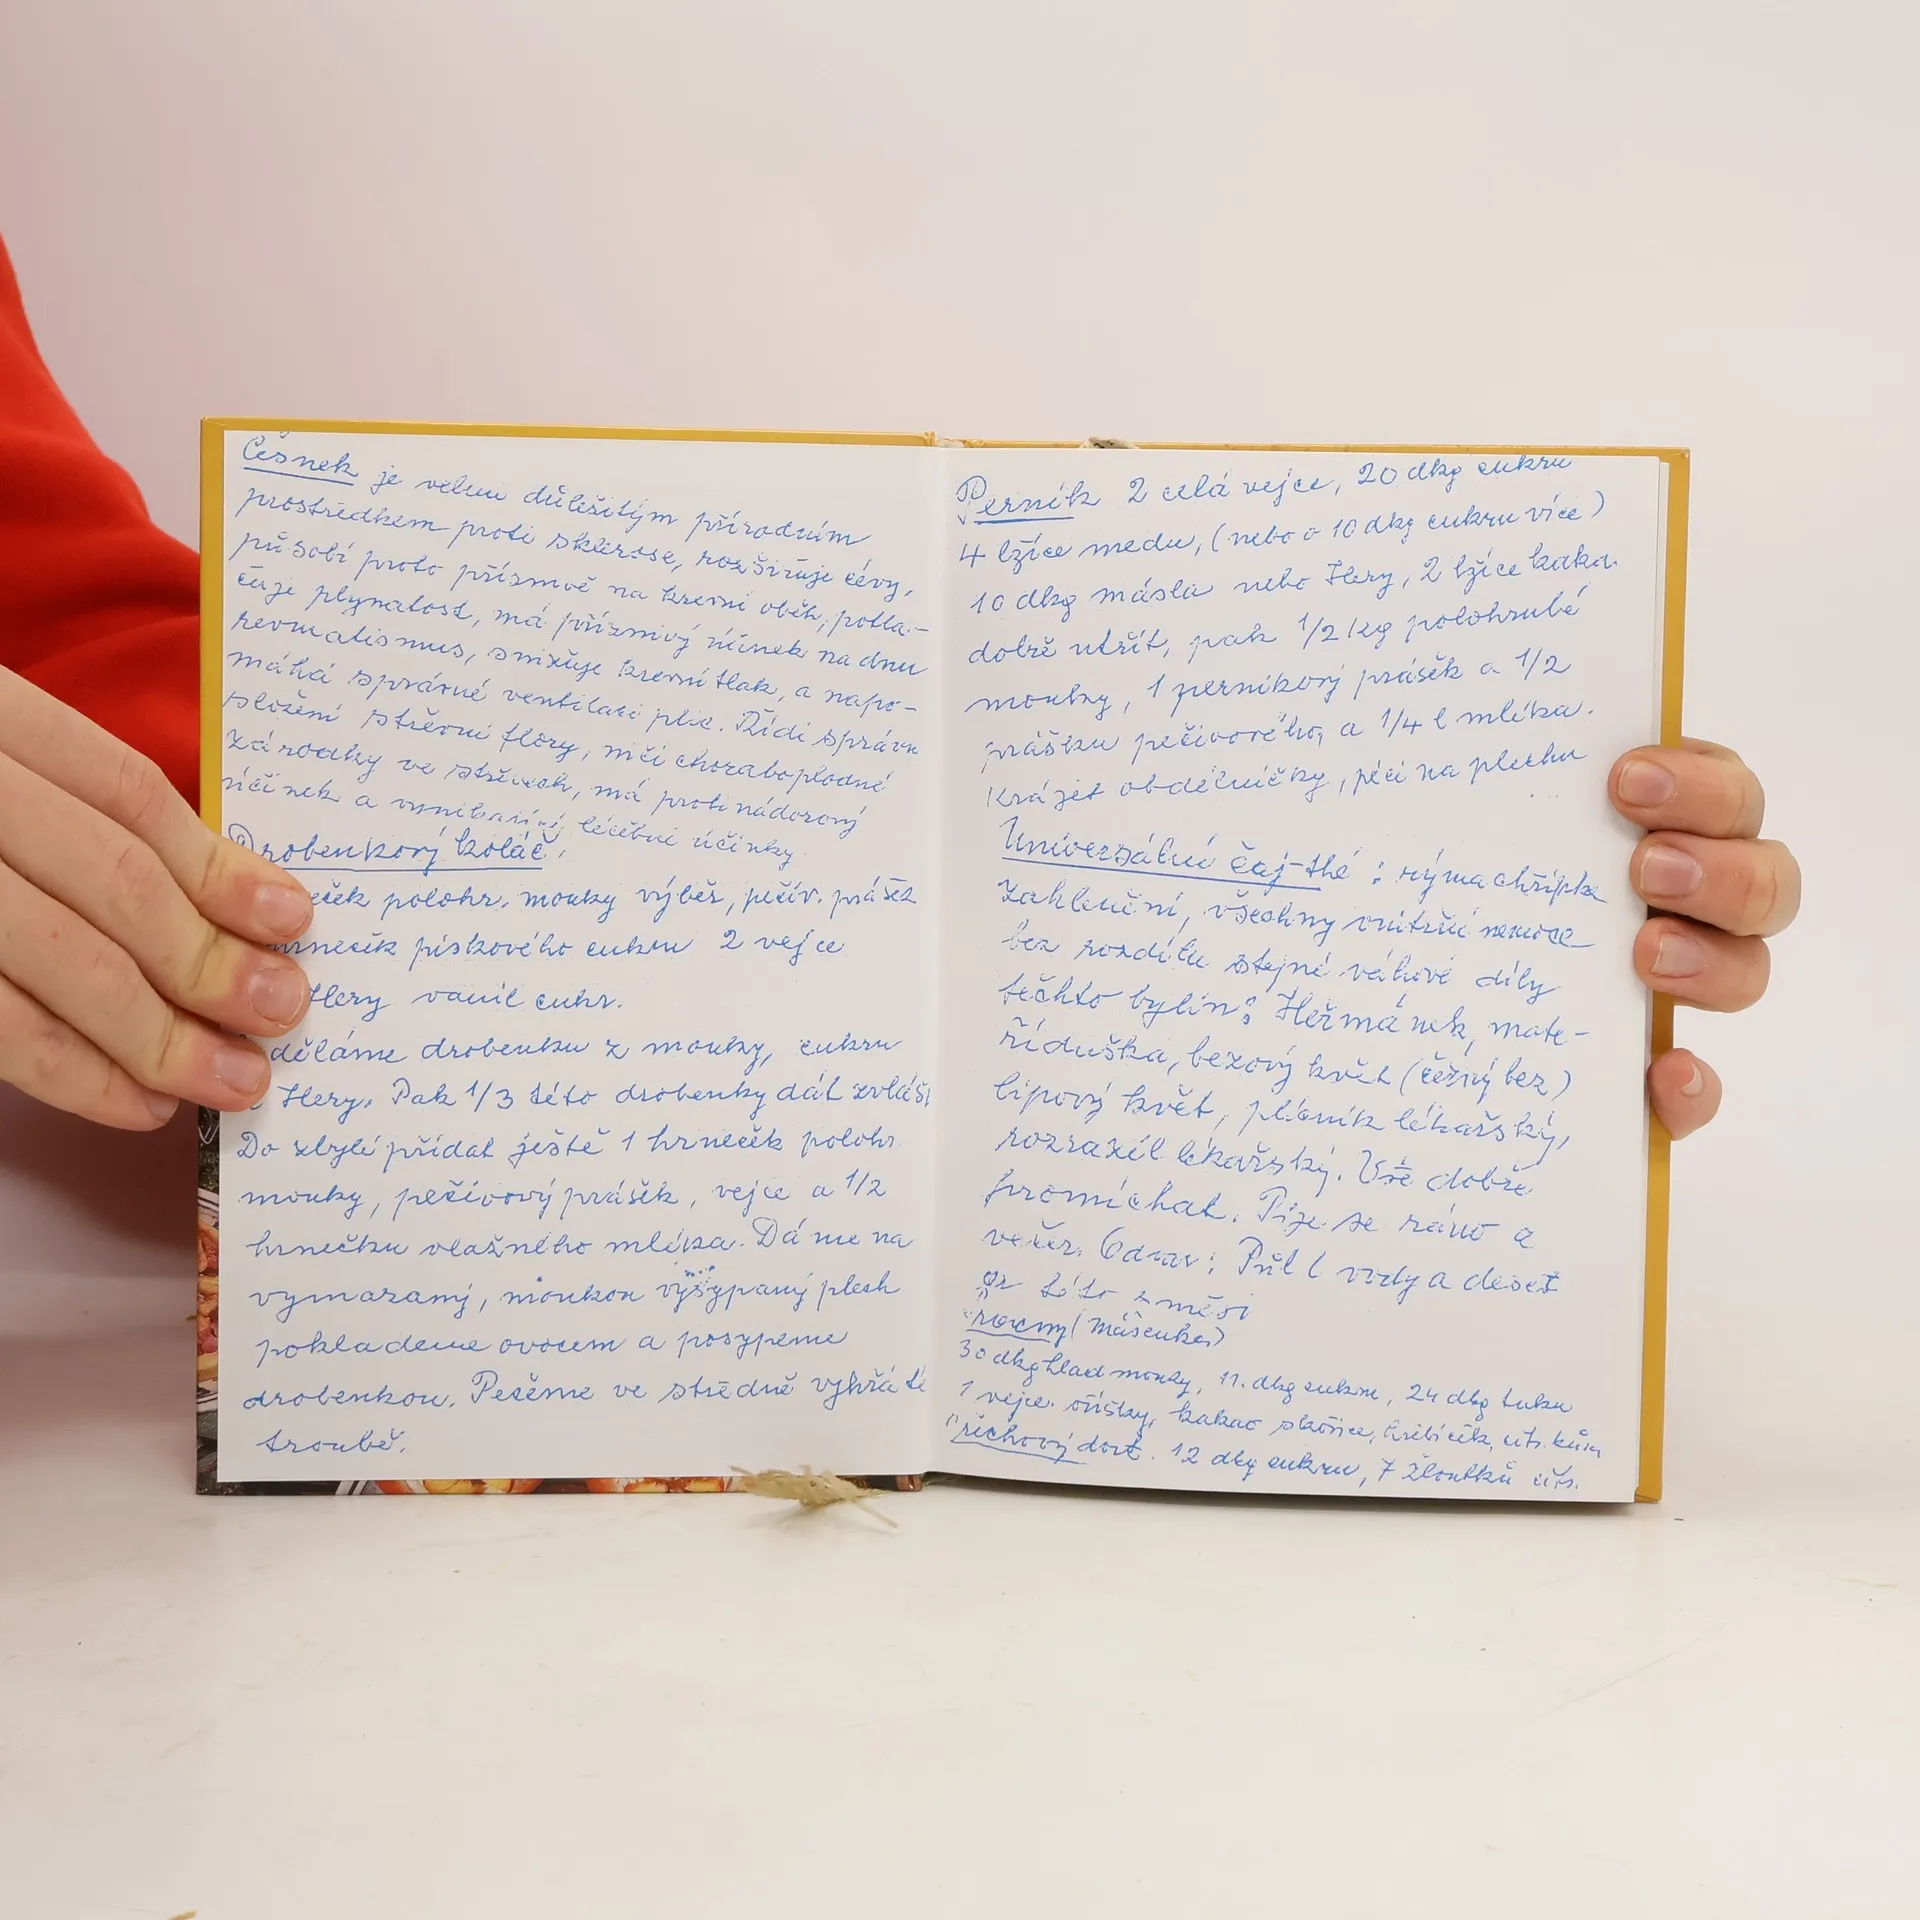 Česnek je velmi důležitým přírodním
prostředkem proti sklerose, rozšiřuje cévy,
působí proto příznivě na krevní oběh, potla-
čuje plynatost, má příznivý účinek na dnu
revmatismus, snižuje krevní tlak, a napo-
máhá správné ventilaci plic. Řídí správn
složení střevní flory, ničí choroboplodné
zárodky ve střevech, má protinádorový
účinek a vynikající léčební účinky.
Drobenkový koláč.
polohr. mouky výběr, pečív. prášek
hrneček pískového cukru 2 vejce
Hery vanil cukr.
děláme drobenku z mouky, cukru
Hery. Pak 1/3 této drobenky dát zvlášť
Do zbylé přidat ještě 1 hrneček polohr
mouky, pečivový prášek, vejce a 1/2
hrnečku vlažného mléka. Dáme na
vymazaný, moukou vysypaný plech
poklademe ovocem a posypeme
drobenkou. Pečeme ve středně vyhřáté
troubě.
Perník 2 celá vejce, 20 dkg cukru
4 lžíce medu, (nebo o 10 dkg cukru více)
10 dkg másla nebo Hery, 2 lžíce kaka.
dobře utřít, pak 1/2 kg polohrubé
mouky, 1 perníkový prášek a 1/2
prášku pečivového, a 1/4 l mléka.
Krájet obdélníčky, péci na plechu
Universální čaj-thé : rýma chřipka
zahlenění, všechny vnitřní nemoce
bez rozdílu stejné váhové díly
těchto bylin: Heřmánek, mate-
řídouška, bezový květ (černý bez)
lipový květ, plicník lékařský,
rozrazil lékařský. Vše dobře
promíchat. Pije se ráno a
večer. Odvar: Půl l vody a deset
gr této směsi
(Mášenka)
30 dkg hlad mouky, 11. dkg cukru, 24 dkg tuku
1 vejce. oříšky, kakao skořice, hřebíček, cit. kůra
Ořechový dort. 12 dkg cukru, 7 žloutků cit.